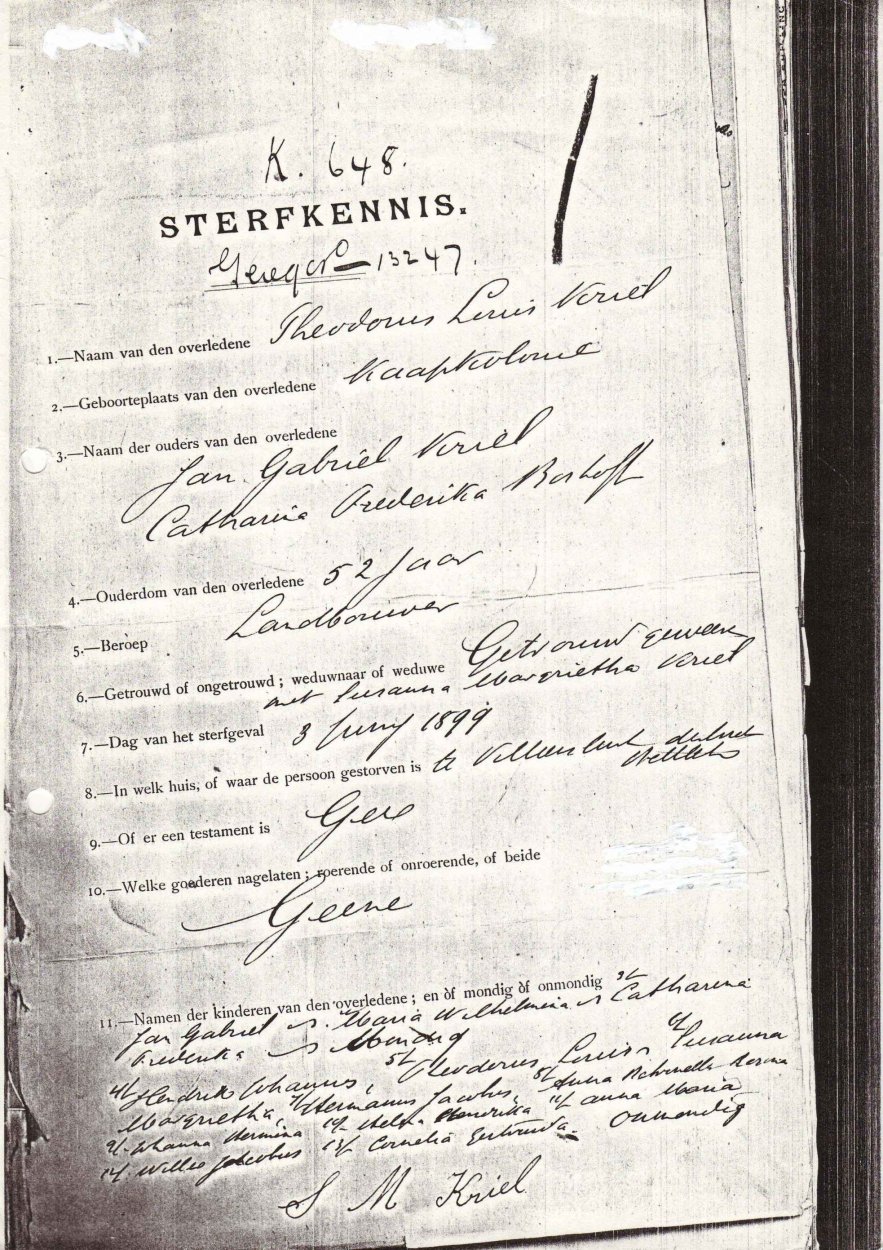 K. 648.
STERFKENNIS.
13247.
1.—Naam van den overledene Theodorus Louis Kriel
2.—Geboorteplaats van den overledene Kaapkolonie
3.—Naam der ouders van den overledene
Jan Gabriel Kriel
Catharina Frederika Boshoff
4.—Ouderdom van den overledene 52 Jaar
5.—Beroep Landbouwer
6.—Getrouwd of ongetrouwd; weduwnaar of weduwe Getrouwd geweest
met Susanna Margrietha Kriel
7.—Dag van het sterfgeval 3 Juny 1899
8.—In welk huis, of waar de persoon gestorven is te
9.—Of er een testament is Geen
10.—Welke goederen nagelaten; roerende of onroerende, of beide
Geene
11.—Namen der kinderen van den overledene; en òf mondig òf onmondig 3/ Catharina
Jan Gabriel Maria Wilhelmina
Frederika Mondig
4/ Hendrik Johannes, 5/ Theodorus Louis, 6/ Susanna
Margrietha, 7/ Hermanus Jacobus, 8/ Anna
9/ Johanna Hermina 10/ Helena Hendrika 11/ Anna Maria
12/ Willie Jacobus 13/ Cornelia Gertruida. Onmondig
S M Kriel